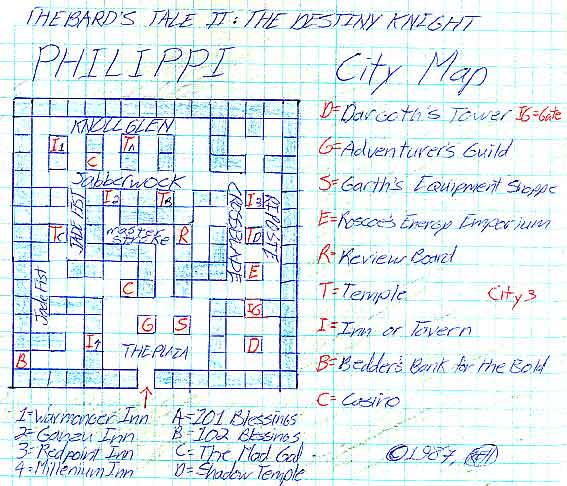 THE BARD'S TALE II: THE DESTINY KNIGHT
PHILIPPI
City Map
KNOLLGLEN
I1
TA
C
Jabberwock
I2
TB
I3
JADE FIST
CROSSBLADE
RIPOSTE
TC
master
R
TD
E
C
Jade Fist
IG
G
S
I4
THE PLAZA
D
B
D=Dargoth's Tower IG=Gate
G=Adventurer's Guild
S=Garth's Equipment Shoppe
E=Roscoe's Energy Emporium
R=Review Board
T=Temple
City 3
I=Inn or Tavern
B=Bedder's Bank for the Bold
C=Casino
1=Warmonger Inn
2=Ganzu Inn
3=Redpoint Inn
4=Millenium Inn
A=101 Blessings
B 102 Blessings
C=The Mad God
D=Shadow Temple
©1987,